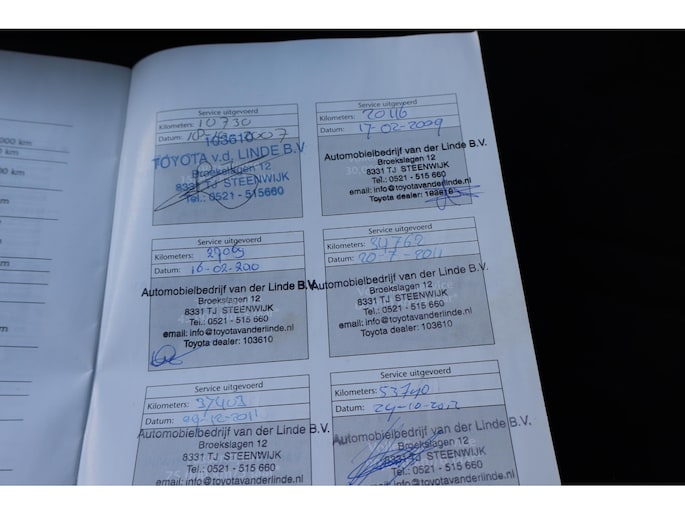 000 km
0 km
00 km
Service uitgevoerd
Kilometers: 10730
Datum: 2007
103610
TOYOTA v.d. LINDE B.V
Broekslagen 12
8331 TJ STEENWIJK
Tel.: 0521 - 515660
Service uitgevoerd
Kilometers: 20116
Datum: 17-02-2009
Automobielbedrijf van der Linde B.V.
Broekslagen 12
8331 TJ STEENWIJK
Tel.: 0521 - 515 660
email: info@toyotavanderlinde.nl
Toyota dealer: 103610
Service uitgevoerd
Kilometers:
Datum: 16-02-200
Automobielbedrijf van der Linde B.V.
Broekslagen 12
8331 TJ STEENWIJK
Tel.: 0521 - 515 660
email: info@toyotavanderlinde.nl
Toyota dealer: 103610
Service uitgevoerd
Kilometers: 34762
Datum: 20-7-2011
Automobielbedrijf van der Linde B.V.
Broekslagen 12
8331 TJ STEENWIJK
Tel.: 0521 - 515 660
email: info@toyotavanderlinde.nl
Toyota dealer: 103610
Service uitgevoerd
Kilometers: 37403
Datum: 12-2011
Automobielbedrijf van der Linde B.V.
Broekslagen 12
8331 TJ STEENWIJK
Tel.: 0521 - 515 660
email: info@toyotavanderlinde.nl
Service uitgevoerd
Kilometers: 53740
Datum: 24-10-2012
Automobielbedrijf van der Linde B.V.
Broekslagen 12
8331 TJ STEENWIJK
Tel.: 0521 - 515 660
email: info@toyotavanderlinde.nl